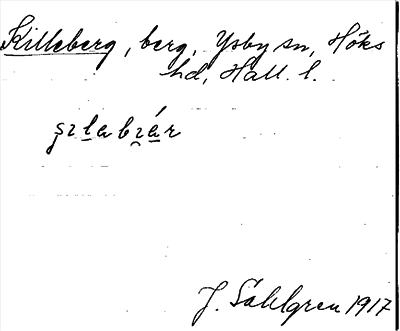 Killeberg, berg, Ysby sn, Höks
hd, Hall. l.
J. Sahlgren 1917